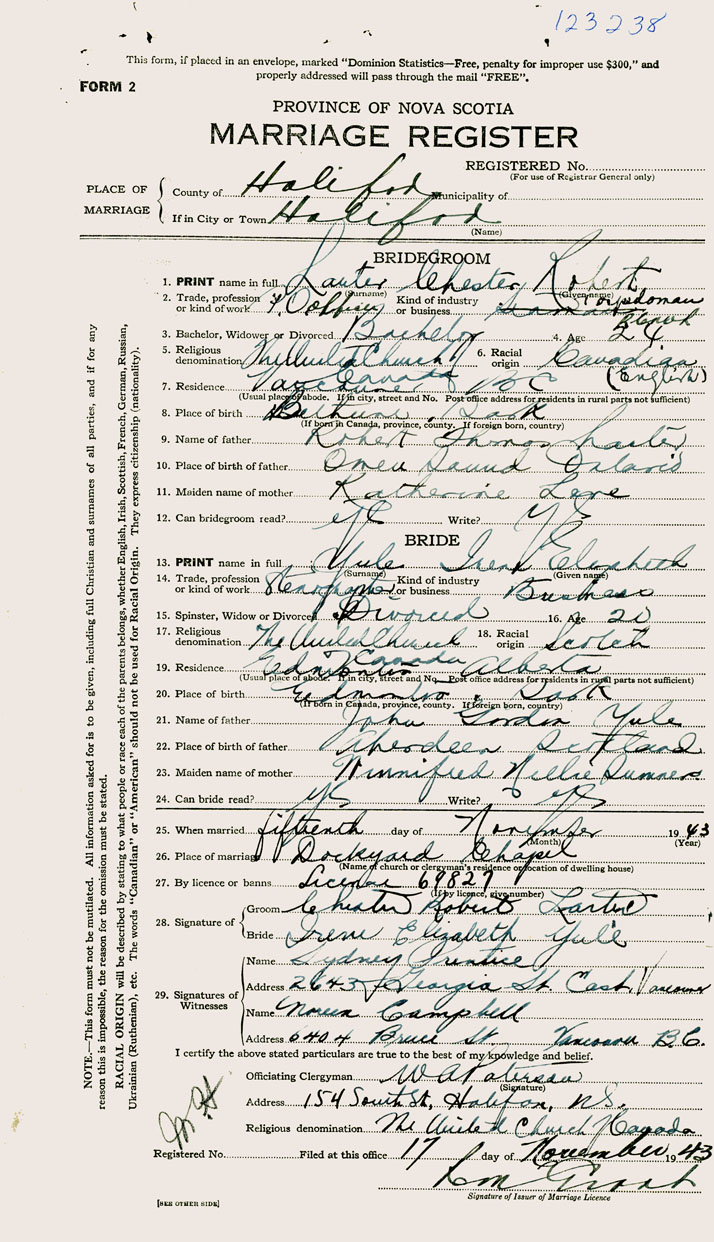 123238
This form, if placed in an envelope, marked "Dominion Statistics—Free, penalty for improper use $300," and
properly addressed will pass through the mail "FREE".
FORM 2
PROVINCE OF NOVA SCOTIA
MARRIAGE REGISTER
REGISTERED No.
(For use of Registrar General only)
PLACE OF MARRIAGE
County of Halifax Municipality of
If in City or Town Halifax
(Name)
BRIDEGROOM
1. PRINT name in full Lauter Chester Robert
(Surname) (Given name)
2. Trade, profession or kind of work Kind of industry or business Torpedoman
3. Bachelor, Widower or Divorced Bachelor 4. Age 24
5. Religious denomination The United Church Canada 6. Racial origin Canadian (English)
7. Residence Vancouver BC
(Usual place of abode. If in city, street and No. Post office address for residents in rural parts not sufficient)
8. Place of birth Bethune, Sask
(If born in Canada, province, county. If foreign born, country)
9. Name of father Robert Thomas Lauter
10. Place of birth of father Owen Sound Ontario
11. Maiden name of mother Katherine
12. Can bridegroom read? yes Write? yes
BRIDE
13. PRINT name in full Yule Irene Elizabeth
(Surname) (Given name)
14. Trade, profession or kind of work Stenographer Kind of industry or business Business
15. Spinster, Widow or Divorced Divorced 16. Age 20
17. Religious denomination The United Church Canada 18. Racial origin Scotch
19. Residence Edmonton Alberta
(Usual place of abode. If in city, street and No. Post office address for residents in rural parts not sufficient)
20. Place of birth Edmonton, Sask
(If born in Canada, province, county. If foreign born, country)
21. Name of father John Gordon Yule
22. Place of birth of father Aberdeen Scotland
23. Maiden name of mother Winnifred Nellie Sumners
24. Can bride read? yes Write? yes
25. When married fifteenth day of November 1943
(Month) (Year)
26. Place of marriage Dockyard Chapel
(Name of church or clergyman's residence or location of dwelling house)
27. By licence or banns License 69829
(If by licence, give number)
28. Signature of Groom Chester Robert Lauter
Bride Irene Elizabeth Yule
29. Signatures of Witnesses
Name Sydney Prentice
Address 2643 Georgia St. East, Vancouver
Name Noreen Campbell
Address 6404 Bruce St. Vancouver B.C.
I certify the above stated particulars are true to the best of my knowledge and belief.
Officiating Clergyman W A Paterson
(Signature)
Address 154 South St., Halifax, N.S.
Religious denomination The United Church Canada
Registered No. Filed at this office 17 day of November 1943
Signature of Issuer of Marriage Licence
[SEE OTHER SIDE]
NOTE.—This form must not be mutilated. All information asked for is to be given, including full Christian and surnames of all parties, and if for any
reason this is impossible, the reason for the omission must be stated.
RACIAL ORIGIN will be described by stating to what people or race each of the parents belongs, whether English, Irish, Scottish, French, German, Russian,
Ukrainian (Ruthenian), etc. The words "Canadian" or "American" should not be used for Racial Origin. They express citizenship (nationality).